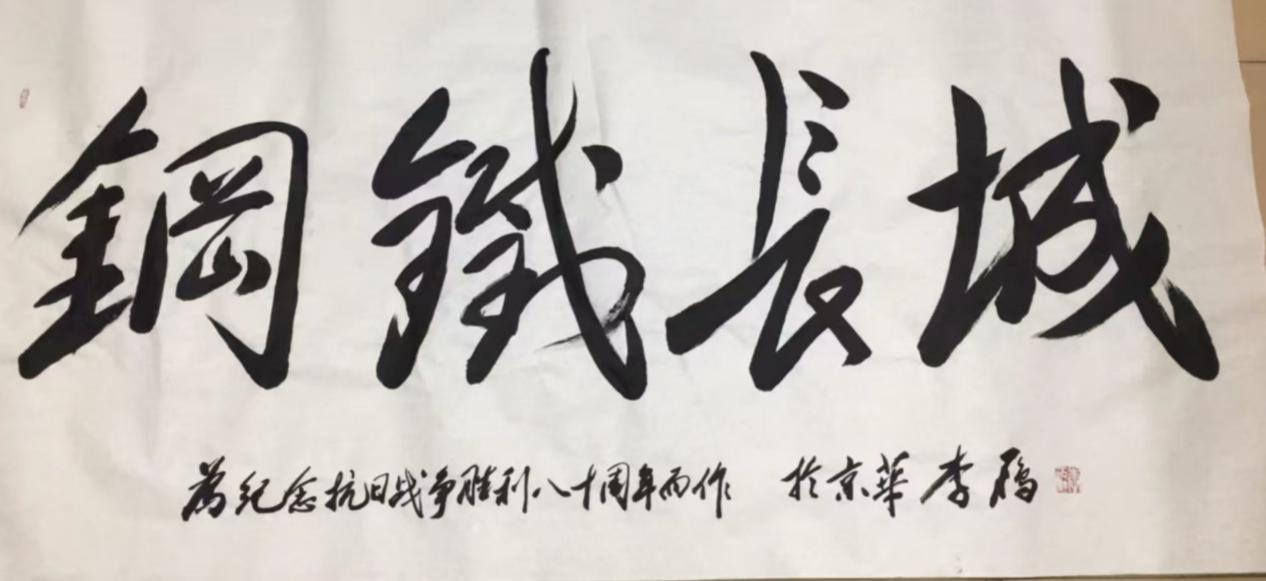 鋼鐵長城
為紀念抗日战争勝利八十周年而作 於京華李